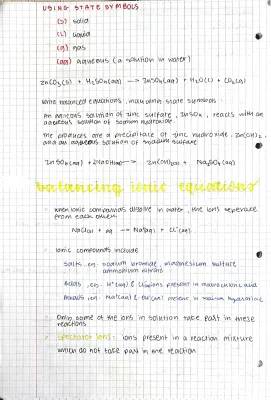 USING STATE SYMBOLS
(s) solid
(l) liquid
(g) gas
(aq) aqueous (a solution in water)
ZnCO₃(s) + H₂SO₄(aq) → ZnSO₄(aq) + H₂O(l) + CO₂(g)
balanced equations, state symbols
An aqueous solution of zinc sulfate, ZnSO₄, reacts with an
aqueous solution of sodium hydroxide.
The products are a precipitate of zinc hydroxide, Zn(OH)₂,
and an aqueous solution of sodium sulfate
ZnSO₄(aq) + 2NaOH(aq) → Zn(OH)₂(s) + Na₂SO₄(aq)
balancing ionic equations
when ionic compounds dissolve in water, the ions seperate
from each other
NaCl(s) + aq → Na⁺(aq) + Cl⁻(aq)
ionic compounds include
salts, eg. sodium bromide, magnesium sulfate
ammonium nitrate
Acids, eg. H⁺(aq) & ions present in hydrochloric acid
ions present in sodium hydroxide
Only some of the ions in solution take part in these
reactions
spectator ions: ions present in a reaction mixture
which do not take part in the reaction